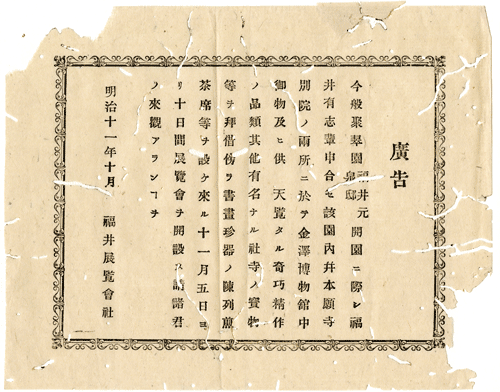 廣告
今般聚翠園福井元泉邸開園ニ際シ福
井有志輩申合セ該園內幷本願寺
別院ノ兩所ニ於テ金澤博物館中
御物及ヒ供 天覽タル奇巧精作
ノ品類其他有名ナル社寺ノ寶物
等ヲ拜借傍ヲ書畫珍器ノ陳列煎
茶席等ヲ設ケ來ル十一月五日ヨ
リ十日間展覽會ヲ開設ス請諸君
ノ來觀アランヿヲ
明治十一年十月 福井展覽會社